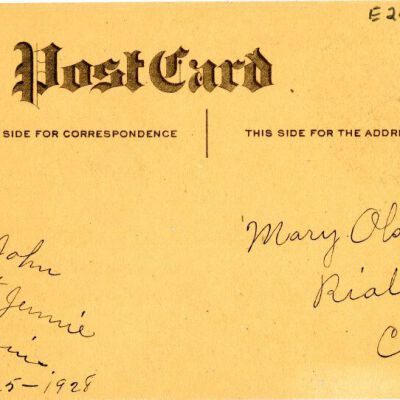 E2
Post Card
SIDE FOR CORRESPONDENCE
THIS SIDE FOR THE ADDRE
Mary Ols
Rial
C
John
& Jennie
5-1928